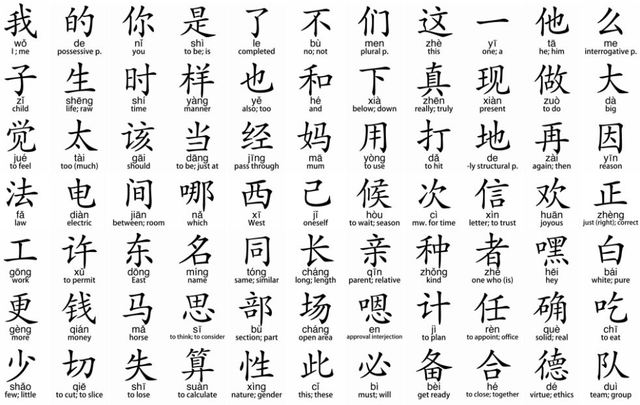 我 的 你 是 了 不 们 这 一 他 么
wǒ de nǐ shì le bù men zhè yī tā me
I; me possessive p. you to be; is completed no; not plural p. this one; a he; him interrogative p.
子 生 时 样 也 和 下 真 现 做 大
zǐ shēng shí yàng yě hé xià zhēn xiàn zuò dà
child life; raw time manner also; too and below; down really; truly present to do big
觉 太 该 当 经 妈 用 打 地 再 因
jué tài gāi dāng jīng mā yòng dǎ de zài yīn
to feel too (much) should to be; just at pass through mum to use to hit -ly structural p. again; then reason
法 电 间 哪 西 己 候 次 信 欢 正
fǎ diàn jiān nǎ xī jǐ hòu cì xìn huān zhèng
law electric between; room which West oneself to wait; season mw. for time letter; to trust joyous just (right); correct
工 许 东 名 同 长 亲 种 者 嘿 白
gōng xǔ dōng míng tóng cháng qīn zhǒng zhě hēi bái
work to permit East name same; similar long; length parent; relative kind one who (is) hey white; pure
更 钱 马 思 部 场 嗯 计 任 确 吃
gèng qián mǎ sī bù cháng en jì rèn què chī
more money horse to think; to consider section; part open area approval interjection to plan to appoint; office solid; real to eat
少 切 失 算 性 此 必 备 合 德 队
shǎo qiē shī suàn xìng cǐ bì bèi hé dé duì
few; little to cut; to slice to lose to calculate nature; gender this; these must; will get ready to close; together virtue; ethics team; group